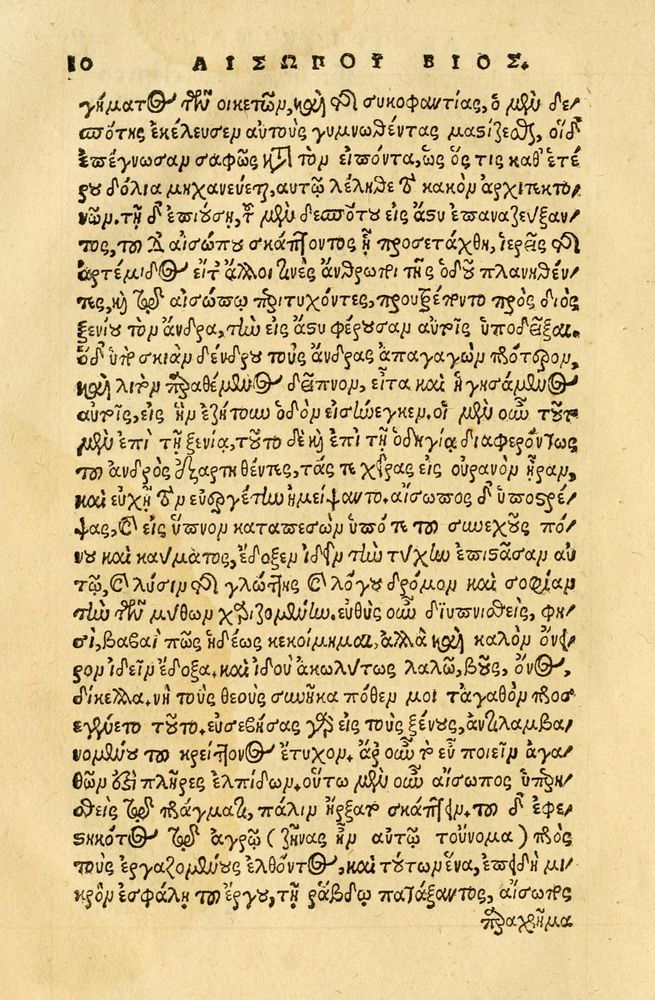 10 ΑΙΣΩΠΟΥ ΒΙΟΣ.
γήματος τῶν οἰκετῶν, καὶ τῆς συκοφαντίας, ὁ μὲν δε-
σπότης ἐκέλευσεν αὐτοὺς γυμνωθέντας μαστίζεσθαι, οἱ δ'
ἐπέγνωσαν σαφῶς κατὰ τὸν εἰπόντα, ὡς ὅς τις καθ' ἑτέ-
ρου δόλια μηχανεύεται, αὐτῷ λέληθε τὸ κακὸν ἀρχιτεκτο-
νῶν. τῇ δ' ἐπιούσῃ, τοῦ μὲν δεσπότου εἰς ἄστυ ἐπαναζεύξαν-
τος, τοῦ δ' αἰσώπου σκάπτοντος ᾗ προσετάχθη, ἱερεῖς τῆς
ἀρτέμιδος εἴτ' ἄλλοι τινὲς ἄνθρωποι τῆς ὁδοῦ πλανηθέν-
τες, καὶ τῷ αἰσώπῳ περιτυχόντες, προυτρέποντο πρὸς διὸς
ξενίου τὸν ἄνδρα, τὴν εἰς ἄστυ φέρουσαν αὐτοῖς ὑποδεῖξαι.
ὁ δ' ὑπὸ σκιὰν δένδρου τοὺς ἄνδρας ἀπαγαγὼν πρότερον,
καὶ λιτὸν παραθέμενος δεῖπνον, εἶτα καὶ ἡγησάμενος
αὐτοῖς, εἰς ἣν ἐζήτουν ὁδὸν εἰσήνεγκεν. οἱ μὲν οὖν τοῦτο
μὲν ἐπὶ τῇ ξενία, τοῦτο δὲ καὶ ἐπὶ τῇ ὁδηγία διαφερόντως
τοῦ ἀνδρὸς ἐξαρτηθέντες, τάς τε χεῖρας εἰς οὐρανὸν ἦραν,
καὶ εὐχῇ τὸν εὐεργέτην ἠμείψαντο. αἴσωπος δ' ὑποστρέ-
ψας, καὶ εἰς ὕπνον καταπεσὼν ὑπό τε τοῦ συνεχοῦς πό-
νου καὶ καύματος, ἔδοξεν ἰδεῖν τὴν τύχην ἐπιστᾶσαν αὐ-
τῷ, καὶ λύσιν τῆς γλώττης καὶ λόγου δρόμον καὶ σοφίαν
τὴν τῶν μύθων χαριζομένην. εὐθὺς οὖν διϋπνισθεὶς, φη-
σὶ, βαβαὶ πῶς ἡδέως κεκοίμημαι, ἀλλὰ καὶ καλὸν ὄνει-
ρον ἰδεῖν ἔδοξα. καὶ ἰδοὺ ἀκωλύτως λαλῶ, βοῦς, ὄνος,
δίκελλα. νὴ τοὺς θεοὺς συνῆκα πόθεν μοι τἀγαθὸν προσ
εγένετο τοῦτο. εὐσεβήσας γὰρ εἰς τοὺς ξένους, ἀντιλαμβα-
νομένου τοῦ κρείττονος ἔτυχον. ἆρ' οὖν τὸ εὖ ποιεῖν ἀγα-
θῶν ἐστὶ πλῆρες ἐλπίδων. οὕτω μὲν οὖν αἴσωπος ὑπερη-
σθεὶς τῷ πράγματι, πάλιν ἤρξατο σκάπτειν. τοῦ δ' ἐφε-
στηκότος τῷ ἀγρῷ (ζηνᾶς ἦν αὐτῷ τοὔνομα) πρὸς
τοὺς ἐργαζομένους ἐλθόντος, καὶ τούτων ἕνα, ἐπειδὴ μι-
κρὸν ἐσφάλη τοῦ ἔργου, τῇ ῥάβδῳ πατάξαντος, αἴσωπος
παραχρῆμα